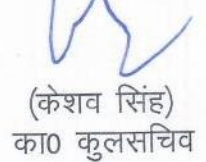 (केशव सिंह)
का0 कुलसचिव